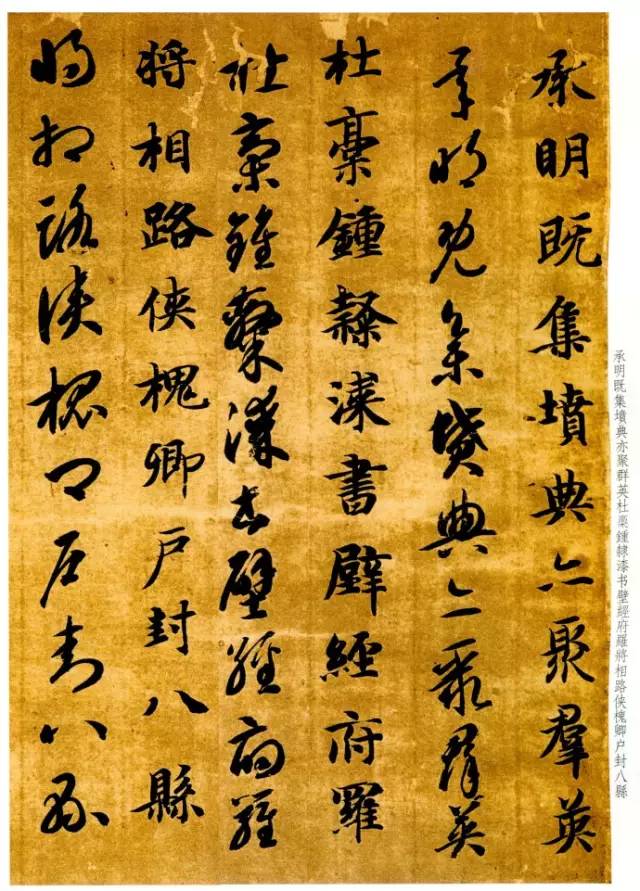 承明既集墳典亦聚羣英
承明既集墳典亦聚羣英
杜稾鍾隸漆書壁經府羅
杜稾鍾隸漆書壁經府羅
將相路俠槐卿戶封八縣
將相路俠槐卿戶封八縣
承明既集墳典亦聚群英杜稾鍾隸漆书壁經府羅將相路俠槐卿户封八縣